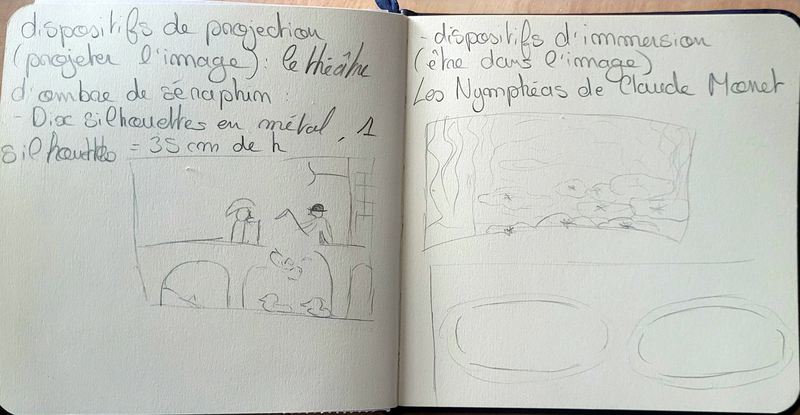 dispositifs de projection
(projeter l'image) : le théâtre
d'ombre de séraphin :
- Dix silhouettes en métal, 1
silhouette = 35 cm de h
- dispositifs d'immersion
(être dans l'image)
Les Nymphéas de Claude Monet